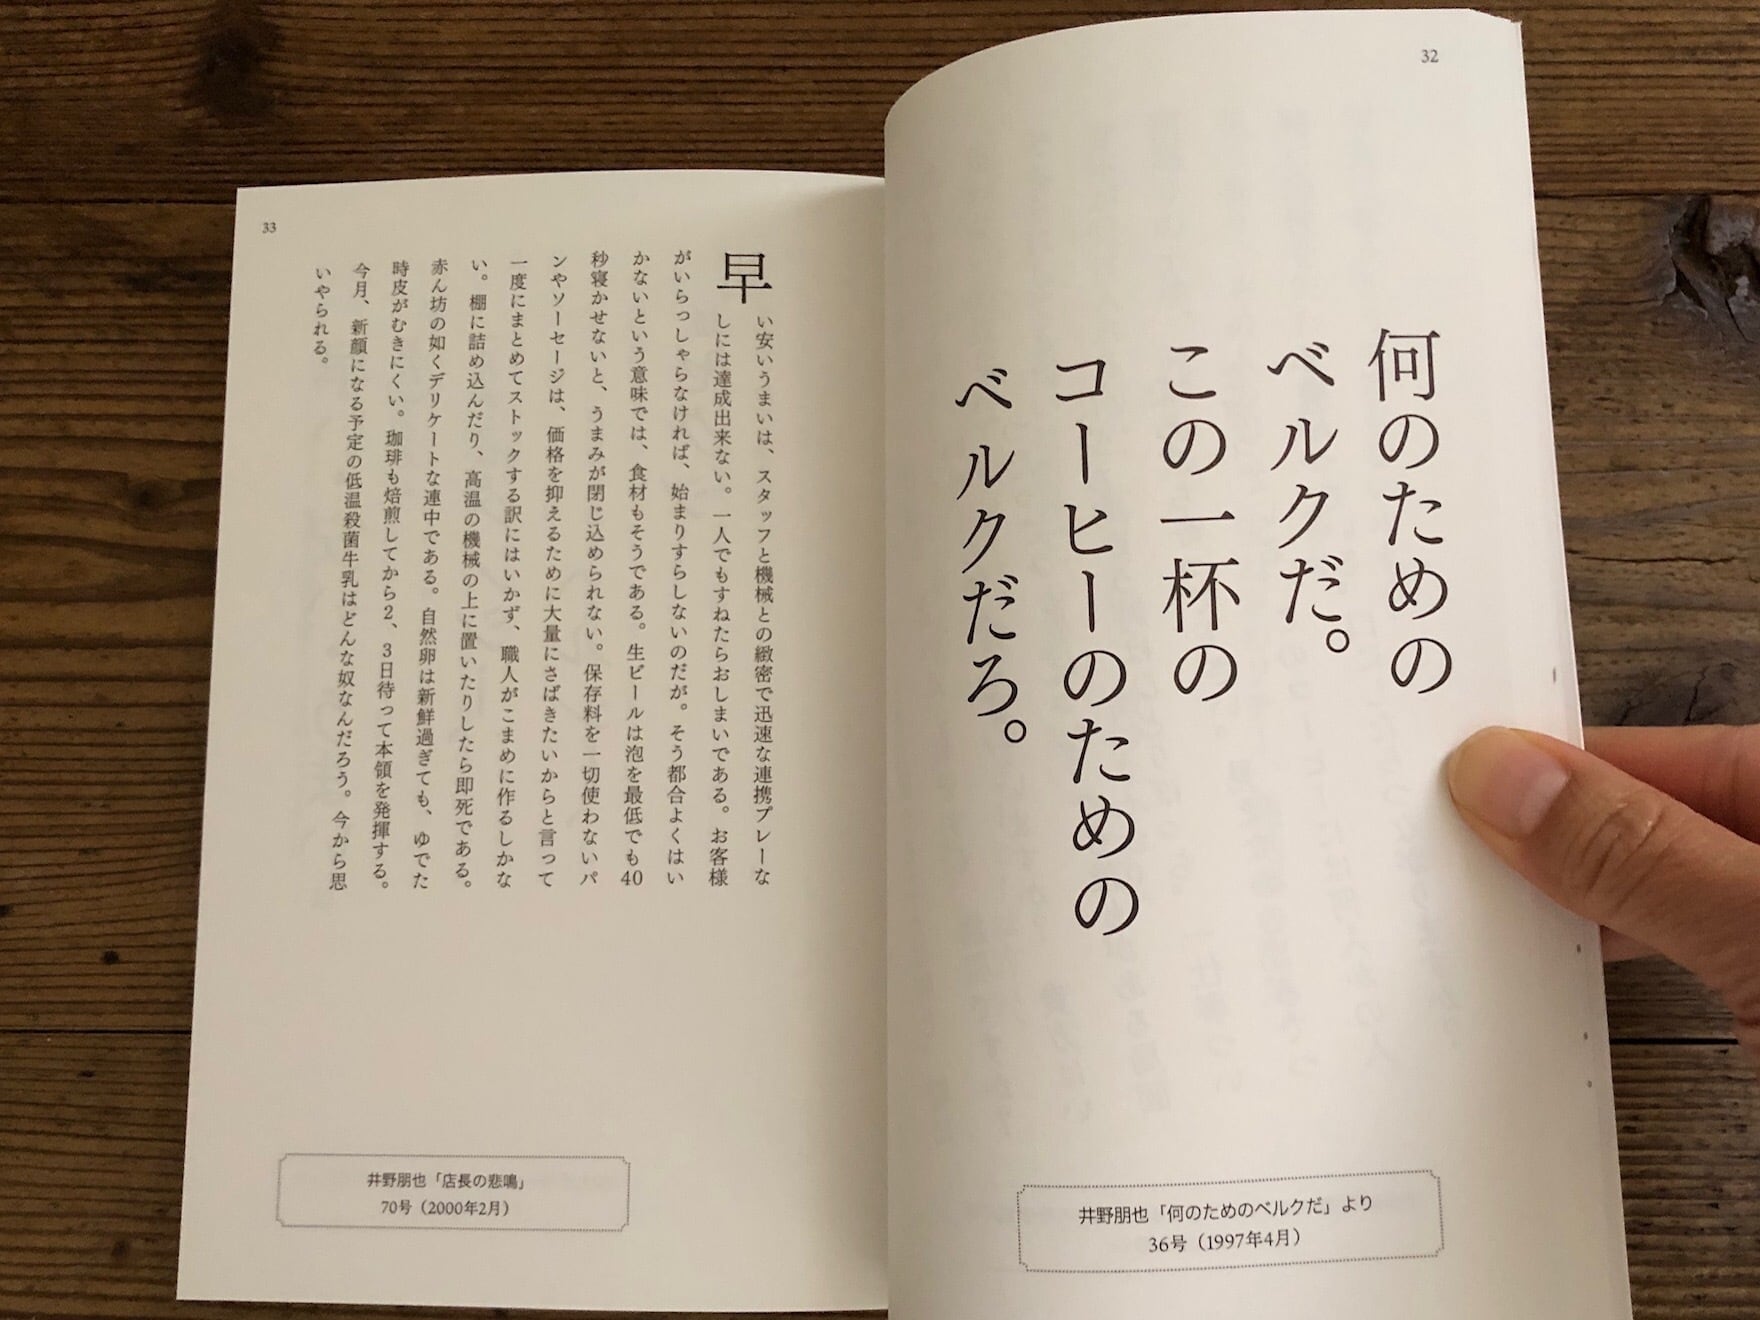 32
何のための
ベルクだ。
この一杯の
コーヒーのための
ベルクだろ。
井野朋也「何のためのベルクだ」より
36号（1997年4月）
33
早い安いうまいは、スタッフと機械との緻密で迅速な連携プレーな
しには達成出来ない。一人でもすねたらおしまいである。お客様
がいらっしゃらなければ、始まりすらしないのだが。そう都合よくはい
かないという意味では、食材もそうである。生ビールは泡を最低でも40
秒寝かせないと、うまみが閉じ込められない。保存料を一切使わないパ
ンやソーセージは、価格を抑えるために大量にさばきたいからと言って
一度にまとめてストックする訳にはいかず、職人がこまめに作るしかな
い。棚に詰め込んだり、高温の機械の上に置いたりしたら即死である。
赤ん坊の如くデリケートな連中である。自然卵は新鮮過ぎても、ゆでた
時皮がむきにくい。珈琲も焙煎してから2、3日待って本領を発揮する。
今月、新顔になる予定の低温殺菌牛乳はどんな奴なんだろう。今から思
いやられる。
井野朋也「店長の悲鳴」
70号（2000年2月）